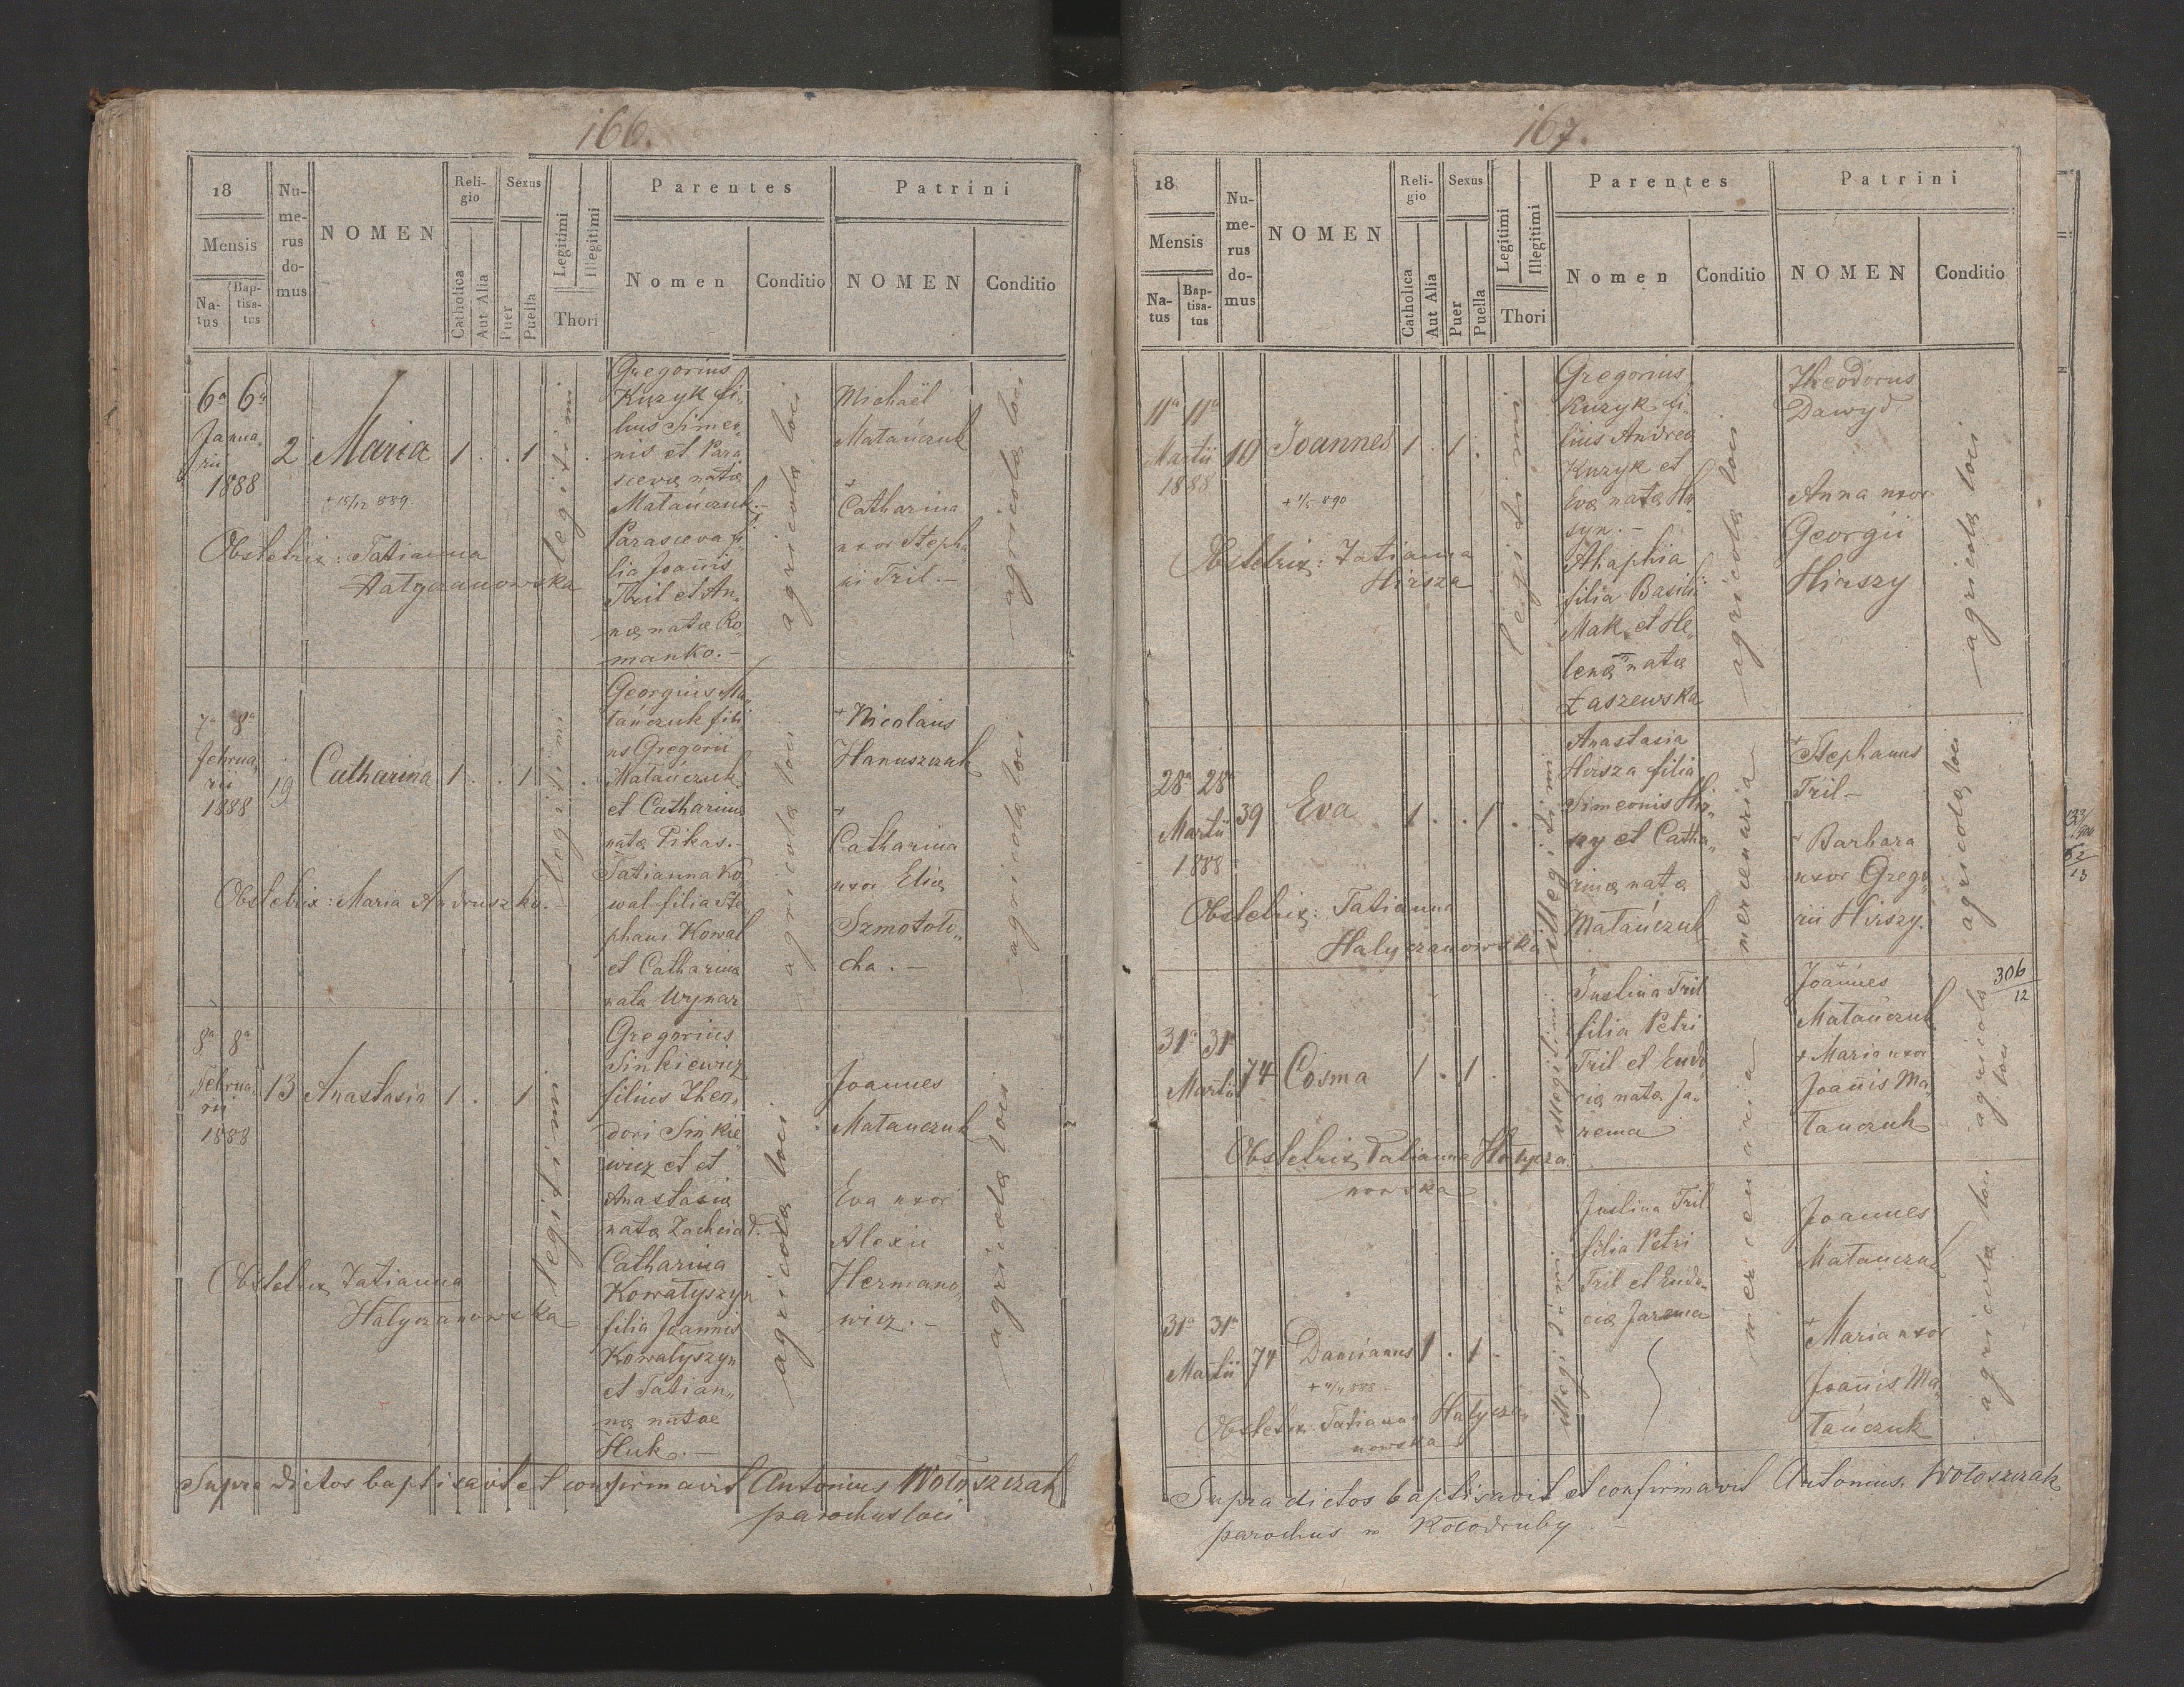 166.
18
Mensis
Na-
tus
Bap-
tisa-
tus
Nu-
me-
rus
do-
mus
NOMEN
Reli-
gio
Catholica
Aut Alia
Sexus
Puer
Puella
Legitimi
Illegitimi
Thori
Parentes
Nomen
Conditio
Patrini
NOMEN
Conditio
6a 6a
Janua,
rii
1888
2
Maria
1 . . 1 .
+ 15/12 889.
Obstetrix: Tatianna
Hałyczanowska
legitimi
Gregorius
Kuzyk fi,,
lius Simeo,,
nis et Para
scevæ natæ
Matańczuk.-
Parasceva fi,
lia Joannis
Tril et An,,
næ natæ Ro,,
manko.-
agricolæ loci
Michaël
Matańczuk
+
Catharina
uxor Stepha,
ni Tril.-
agricolæ loci
7a 8a
Februa,
rii
1888
19
Catharina
1 . . 1 .
Obstetrix: Maria Andruszko.-
legitimi
Georgius Ma,,
tańczuk fili,
us Gregorii
Matańczuk
et Catharinæ
natæ Pikas.-
Tatianna Ko,,
wal filia Ste,
phani Kowal
et Catharinæ
natæ
agricolæ loci
+ Nicolaus
Hanuszczak
+
Catharina
uxor Eliæ
Szmototo,,
cha.-
agricolæ loci
8a 8a
Februa,
rii
1888
13
Anastasia
1 . 1
Obstetrix Tatianna
Hałyczanowska
legitimi
Gregorius
Sinkiewicz
filius Theo,
dori Sinkie,,
wicz et et
Anastasiæ
natæ Zacheiad.
Catharina
Kowałyszyn
filia Joannis
Kowałyszyn
et Tatian,,
næ natae
Huk.-
agricolæ loci
Joannes
Matańczuk
Eva uxor
Alexii
Hermano,,
wicz.-
agricolæ loci
Supra dictos baptisavit et confirmavit Antonius Wołoszczak
parochus loci
167.
18
Mensis
Na-
tus
Bap-
tisa-
tus
Nu-
me-
rus
do-
mus
NOMEN
Reli-
gio
Catholica
Aut Alia
Sexus
Puer
Puella
Legitimi
Illegitimi
Thori
Parentes
Nomen
Conditio
Patrini
NOMEN
Conditio
11a 11a
Martii
1888
10
Joannes
1 . 1 .
890
Obstetrix: Tatianna
Hirsza
legitimi
Gregorius
Kuzyk fi,,
lius Andreæ
Kuzyk et
Evæ natæ Hi,
syn.-
Ahaphia
filia Basilii
Mak et He,,
lenæ natæ
Łaszewska
agricolæ loci
Theodorus
Dawyd
Anna uxor
Georgii
Hirszy
agricolæ loci
28a 28a
Martii
1888
39
Eva
1 . . 1 .
Obstetrix: Tatianna
Hałyczanowska
illegitimi
Anastasia
Hirsza filia
Simeonis Hir,,
szy et Catha,,
rinæ natæ
Matańczuk
mercenaria
+ Stephanus
Tril-
+ Barbara
uxor Grego,,
rii Hirszy.
agricolæ loci
31a 31a
Martii
74
Cosma
1 . 1 .
Obstetrix Tatianna Hałycza,
nowska
illegitimi
Justina Tril
filia Petri
Tril et Eudo
ciæ natæ Ja,,
rema
mercenaria
Joannes
Matańczuk
+ Maria uxor
Joannis Ma,,
tańczuk
agricolæ
ag. loci
306
12
31a 31a
Martii
74
Damianus
1 . 1 .
888
Obstetrix Tatianna Hałycza,,
nowska
illegitimi
Justina Tril
filia Petri
Tril et Eudo,
ciæ Jarema
mercenaria
Joannes
Matańczuk
+ Maria uxor
Joannis Ma,,
tańczuk
agricolæ loci
Supra dictos baptisavit et confirmavit Antonius. Wołoszczak
parochus in Kołodruby.-